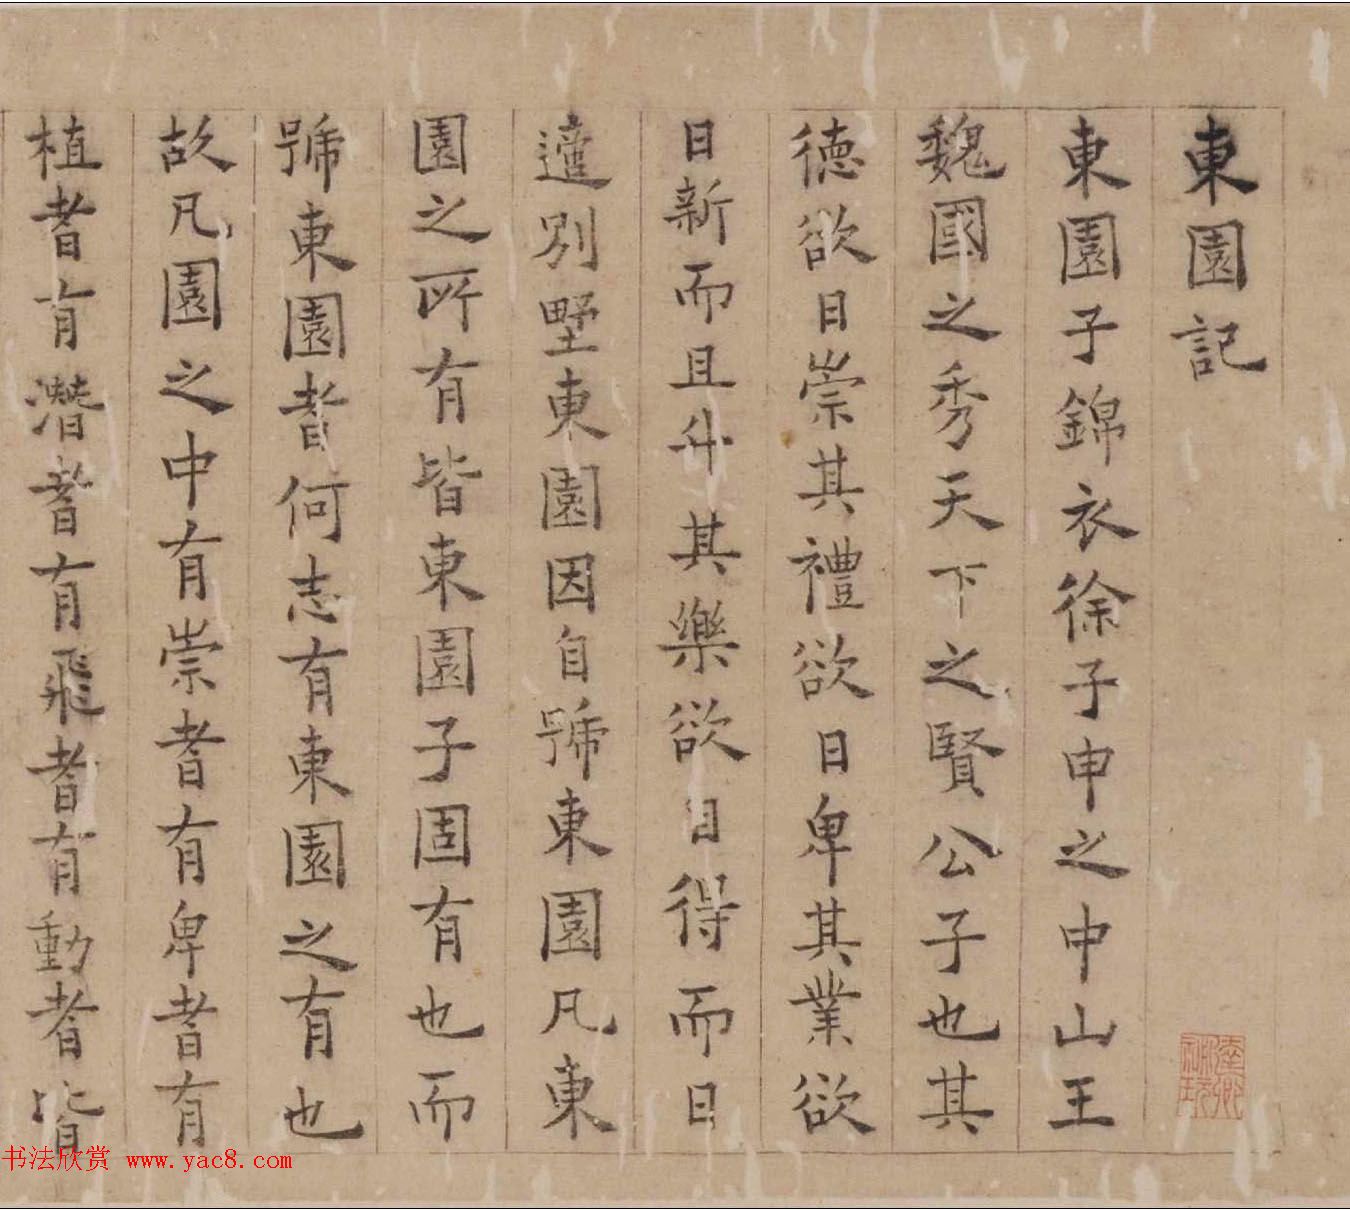 東園記
東園子錦衣徐子申之中山王
魏國之秀天下之賢公子也其
德欲日崇其禮欲日卑其業欲
日新而且升其樂欲日得而日
適別墅東園因自號東園凡東
園之所有皆東園子固有也而
號東園者何志有東園之有也
故凡園之中有崇者有卑者有
植者有潛者有飛者有動者皆
书法欣赏 www.yac8.com